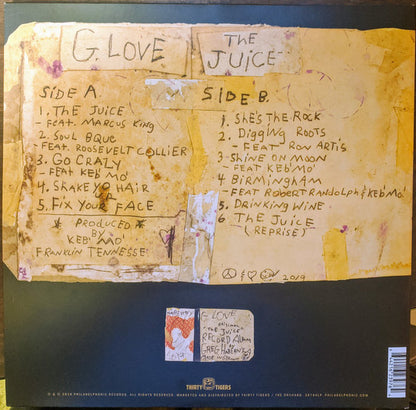 G. LOVE
THE JUICE
SIDE A.
1. THE JUICE
- FEAT. MARCUS KING
2. SOUL BQUE
FEAT. ROOSEVELT COLLIER
3. GO CRAZY
- FEAT KEB' MO'
4. SHAKE YO HAIR
5. FIX YOUR FACE
* PRODUCED *
BY
KEB' MO'
FRANKLIN TENNESSE
SIDE B.
1. SHE'S THE ROCK
2. DIGGING ROOTS
- FEAT RON ARTIS
3 - SHINE ON MOON
- FEAT KEB' MO'
4 BIRMINGHAM
- FEAT ROBERT RANDOLPH & KEB' MO'
5. DRINKING WINE
6 THE JUICE
(REPRISE)
2019
G. LOVE
"THE JUICE"
RECORD ALBUM
THIRTY TIGERS
℗ & © 2019 PHILADELPHONIC RECORDS. ALL RIGHTS RESERVED. MARKETED AND DISTRIBUTED BY THIRTY TIGERS / THE ORCHARD. PHILADELPHONIC.COM